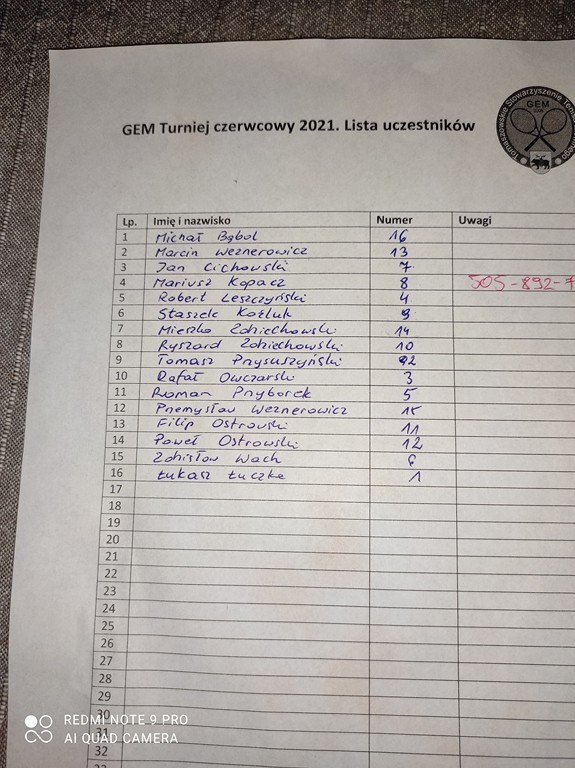 GEM Turniej czerwcowy 2021. Lista uczestników
Tomaszowskie Stowarzyszenie
GEM
Lp. Imię i nazwisko Numer Uwagi
1 Michał Bąbol 16
2 Marcin Weznerowicz 13
3 Jan Cichowski 7
4 Mariusz Kopacz 8 505-892-7
5 Robert Leszczyński 4
6 Staszek Koźluk 9
7 Mieszko Zdziechowski 14
8 Ryszard Zdziechowski 10
9 Tomasz Przysuszyński 2
10 Rafał Owczarski 3
11 Roman Przyborek 5
12 Przemysław Weznerowicz 15
13 Filip Ostrowski 11
14 Paweł Ostrowski 12
15 Zdzisław Wach 6
16 Łukasz Łuczka 1
17
18
19
20
21
22
23
24
25
26
27
28
29
30
31
32
REDMI NOTE 9 PRO
AI QUAD CAMERA